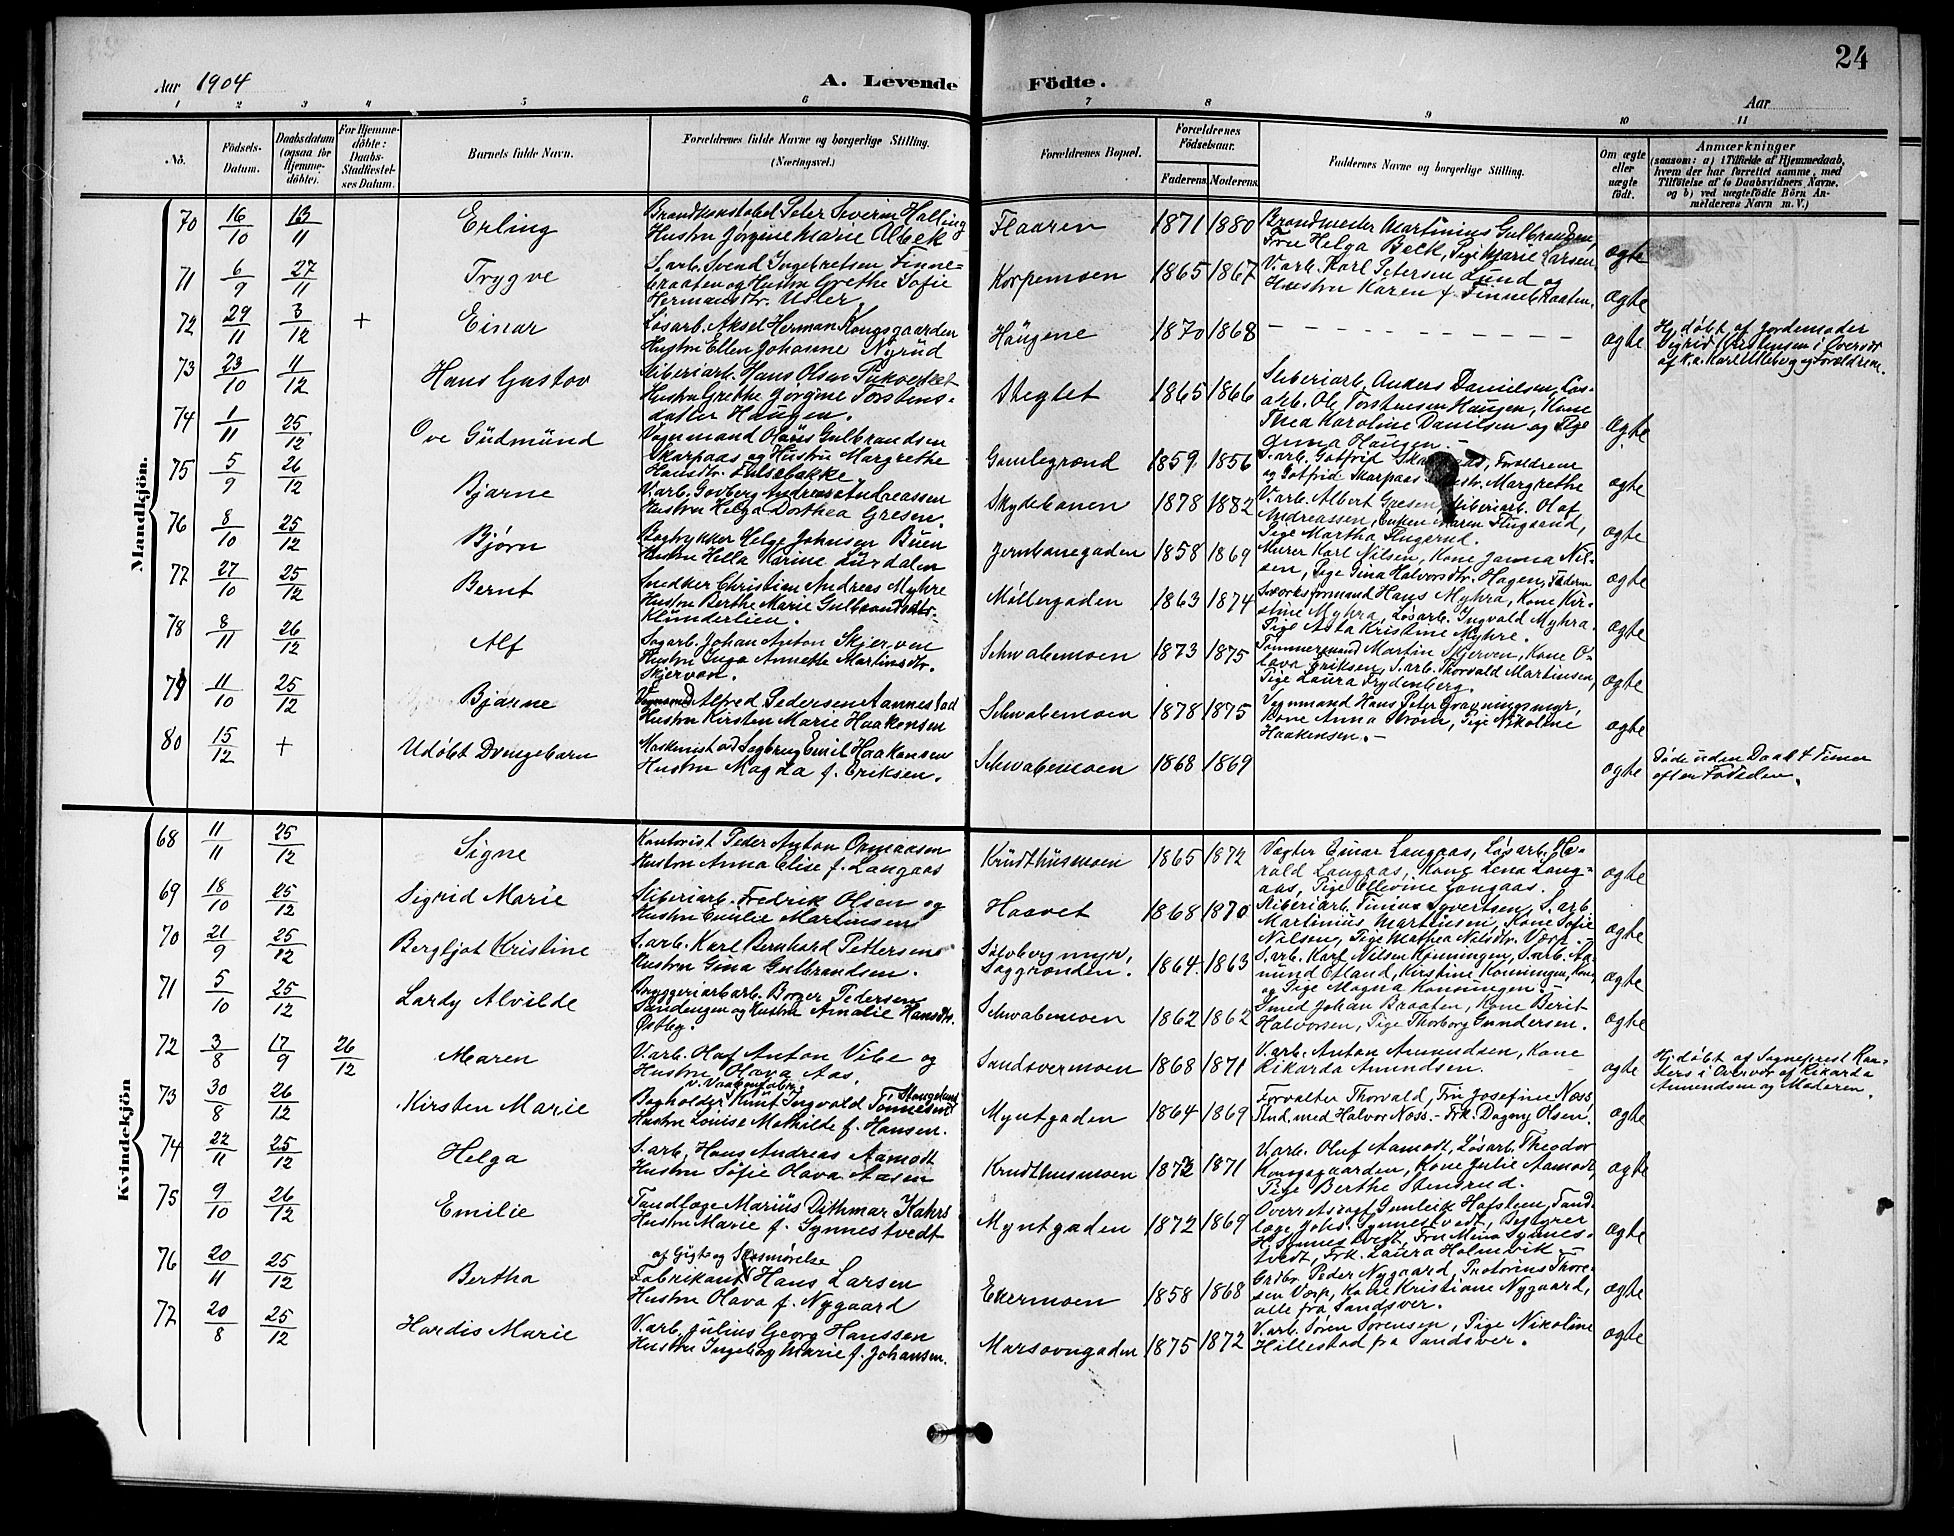 24
Aar 1904 A. Levende Födte. Aar
1 2 3 4 5 6 7 8 9 10 11
No. Födsels-Datum. Daabsdatum (ogsaa for Hjemme-döbte). For Hjemme-döbte: Daabs-Stadfæstel-ses Datum. Barnets fulde Navn. Forældrenes fulde Navne og borgerlige Stilling. (Næringsvei.) Forældrenes Bopæl. Forældrenes Födselsaar. Faderens. Moderens. Faddernes Navne og borgerlige Stilling. Om ægte eller uægte födt. Anmærkninger (saasom: a) i Tilfælde af Hjemmedaab, hvem der har forrettet samme, med Tilföielse af to Daabsvidners Navne, og b) ved uægtefödte Börn An-melderens Navn m. V.)
Mandkjön.
70 16/10 13/11 Erling Brandkonstabel Peter Severin Halling Flaaren 1871 1880 Brandmester Martinius Gulbrandsen, ægte
Hustru Jørgine Marie Albek Fru Helga Beck, Pige Marie Larsen,
71 6/9 27/11 Trygve S.arb. Svend Ingebretsen Finne- Korpemoen 1865 1867 V.arb. Karl Petersen Lund og ægte
braaten og Hustru Grethe Sofie Hustru Karen f. Finnebraaten.
Hermansdtr.
72 29/11 3/12 + Einar Løsarb. Aksel Herman Kongsgaarden Haügene 1870 1868 - - - - - ægte Hj.døbt af Jordemoder
Hustru Ellen Johanne Nyrüd Sigrid
73 23/10 11/12 Hans Gustav Sliberiarb. Hans Olsen Steglet 1865 1866 Sliberiarb. Anders Danielsen, Løs- ægte
Hustru Grethe Jørgine Torstens- arb. Ole Torstensen Haugen, Kone
datter Haugen. Thea Karoline Danielsen og Pige
Anna Haugen.
74 1/11 25/12 Ove Güdmünd Vognmand Gulbrandsen Gamlegrend 1859 1856 S.arb. Gotfrit Forældrene ægte
Skarpaas og Hustru Margrethe og Gotfrid Skarpaas Margrethe
75 5/9 26/12 Bjarne V.arb. Andreas Andreassen Skydebanen 1878 1882 V.arb. Albert Sliberiarb. Olaf ægte
Hustru Helga Dorthea Gresen. Andreassen, Enken Maren
Pige Martha
76 8/10 25/12 Bjørn Bogtrykker Helge Johnsen Buen Jernbanegaden 1858 1869 Murer Karl Nilsen, Kone Janna Nil- ægte
Hustru Hella Karine Lürdalen sen, Pige Gina Halvorsdtr. Hagen, Faderen
77 27/10 25/12 Bernt Snedker Christian Andreas Myhre Møllergaden 1863 1874 Hans Myhra, Kone Kir- ægte
Hustru Berthe Marie Gulbrandsdtr. stine Myhra, Løsarb. Ingvald Myhra.
Klünderlien. Pige Asta Kristine Myhre.
78 8/11 26/12 Alf Sagarb. Johan Anton Skjerven Schwabemoen 1873 1875 Tømmermand Martin Skjerven, Kone O- ægte
Hustru Inga Annette Martinsdtr. lava Eriksen, S.arb. Thorvald Martinsen,
Skjerven. Pige Laura Frydenberg.
79 11/10 25/12 Bjarne Vognmand Alfred Pedersen Aannestad Schwabemoen 1878 1875 Vognmand Hans Peter Gravningsmyr, ægte
Hustru Kirsten Marie Haakensen Kone Anna Pige Nikoline
Haakensen.-
80 15/12 + Udøbt Drengebarn Maskinist ved Sagbrug Emil Haakensen Schwabemoen 1868 1869 ægte Døde uden Daab 4 Timer
Hustru Magda f. Eriksen. efter Fødselen.
Kvindekjön
68 11/11 25/12 Signe Kontorist Peder Anton Krüdthüsmoen 1865 1872 Vagter Einar Langaas, Løsarb. Ha- ægte
Hustru Anna Elise f. Langaas rald Langaas, Kone Lena Lang-
aas, Pige Ellevine Langaas.
69 18/10 25/12 Sigrid Marie Sliberiarb. Fredrik Olsen og Haavet 1868 1870 Sliberiarb. Syvertsen, S.arb. ægte
Hustru Emilie Martinsen Martinius Martinsen, Kone Sofie
Nilsen, Pige Mathea Nilsdtr.
70 21/9 25/12 Bergljot Kristine S.arb. Karl Bernhard Pettersen Sølvbergmyr, 1864 1863 S.arb. Karl Nilsen S.arb. Aa- ægte
Hustru Gina Gulbrandsen. Saggrenden. mund Efland, Kirstine
og Pige Magna
71 5/10 25/12 Lardy Alvilde Bryggeriarbarb. Borger Pedersen Schwabemoen 1862 1862 Smed Johan Braaten, Kone Berit ægte
Sandengen og Hustru Amalie Hansdtr. Halvorsen, Pige Thorborg Gundersen.
Østby.
72 3/8 17/9 26/12 Maren V.arb. Olaf Anton Vibe og Sandsvermoen 1868 1871 V.arb. Anton Amundsen, Kone ægte Hj.døbt af Sogneprest
Hustru Olava Aas. Rikarda Amundsen. Rikarda
Amundsen og Moderen.
73 30/8 26/12 Kirsten Marie Bogholder v. Vaabenfabr. Knüt Ingvald Tönnesen Myntgaden 1864 1869 Forvalter Thorvald, Fru Josefine Noss ægte
Hustru Louise Mathilde f. Hansen. Stud. med Halvor Noss.- Frk. Dagny Olsen.
74 22/11 25/12 Helga S.arb. Hans Andreas Aamodt Krudthusmoen 1872 1871 V.arb. Oluf Aamodt, Løsarb. Theodor ægte
Hustru Sofie Olava Aasen Kongsgaarden, Kone Julie Aamodt,
Pige Berthe Stensrud.
75 9/10 26/12 Emilie Tandlæge Mariüs Dithmar Kahrs Myntgaden 1872 1869 Overretssagf. Hofsteen, Tand- ægte
Hustru Marie f. Synnestvedt læge Johs. Synnestvedt, Bestyrer
H. Synnestvedt, Fru Mina Synnes-
tvedt, Frk. Laura Holmvik
76 20/11 25/12 Bertha af Gigt og Skosmørelse
Fabrikant Hans Larsen Ekermoen 1858 1868 Grdbr. Peder Nygaard, Thore- ægte
Hustru Olava f. Nygaard sen Kone Kristiane Nygaard,
alle fra Sandsver.
72 20/8 25/12 Hardis Marie V.arb. Julius Georg Hanssen Marsovngaden 1875 1872 V.arb. Søren Sørensen, Pige Nikoline ægte
Hustru Ingeborg Marie f. Johansen. Hillestad fra Sandsver.